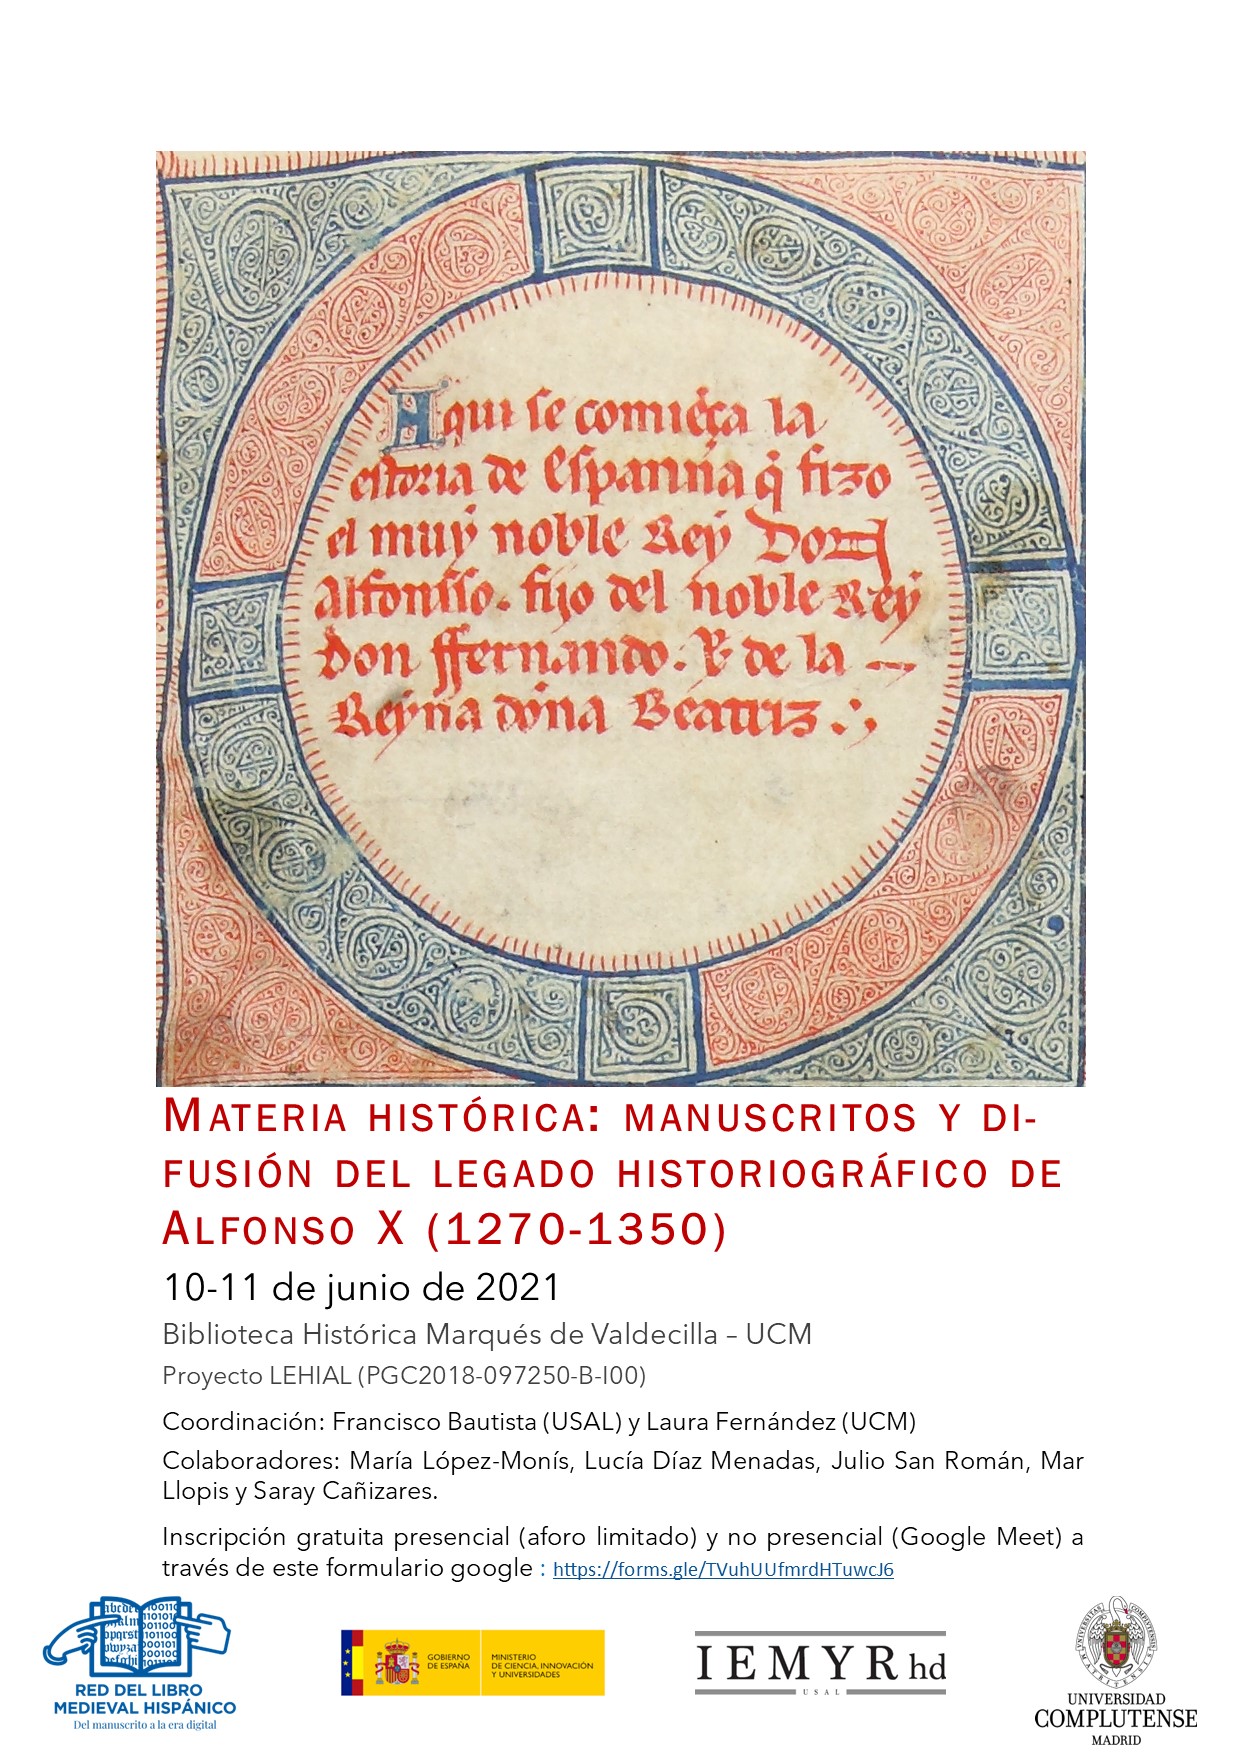 Aqui se comiẽça la
estoria de Espanna q̃ fizo
el muy noble Rey Don
Alfonsso. fijo del noble Rey
Don ffernando. & de la
Reyna doña Beatriz
MATERIA HISTÓRICA: MANUSCRITOS Y DI-
FUSIÓN DEL LEGADO HISTORIOGRÁFICO DE
ALFONSO X (1270-1350)
10-11 de junio de 2021
Biblioteca Histórica Marqués de Valdecilla – UCM
Proyecto LEHIAL (PGC2018-097250-B-I00)
Coordinación: Francisco Bautista (USAL) y Laura Fernández (UCM)
Colaboradores: María López-Monís, Lucía Díaz Menadas, Julio San Román, Mar
Llopis y Saray Cañizares.
Inscripción gratuita presencial (aforo limitado) y no presencial (Google Meet) a
través de este formulario google : https://forms.gle/TVuhUUfmrdHTuwcJ6
RED DEL LIBRO
MEDIEVAL HISPÁNICO
Del manuscrito a la era digital
GOBIERNO
DE ESPAÑA
MINISTERIO
DE CIENCIA, INNOVACIÓN
Y UNIVERSIDADES
IEMYRhd
USAL
UNIVERSIDAD
COMPLUTENSE
MADRID